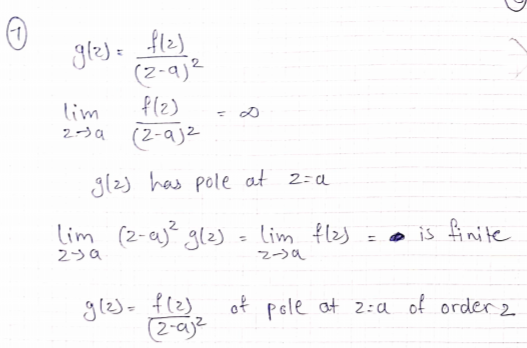 1
g(z) = f(z) / (z-a)²
lim z→a f(z) / (z-a)² = ∞
g(z) has pole at z=a
lim z→a (z-a)² g(z) = lim z→a f(z) = is finite
g(z) = f(z) / (z-a)² of pole at z=a of order 2